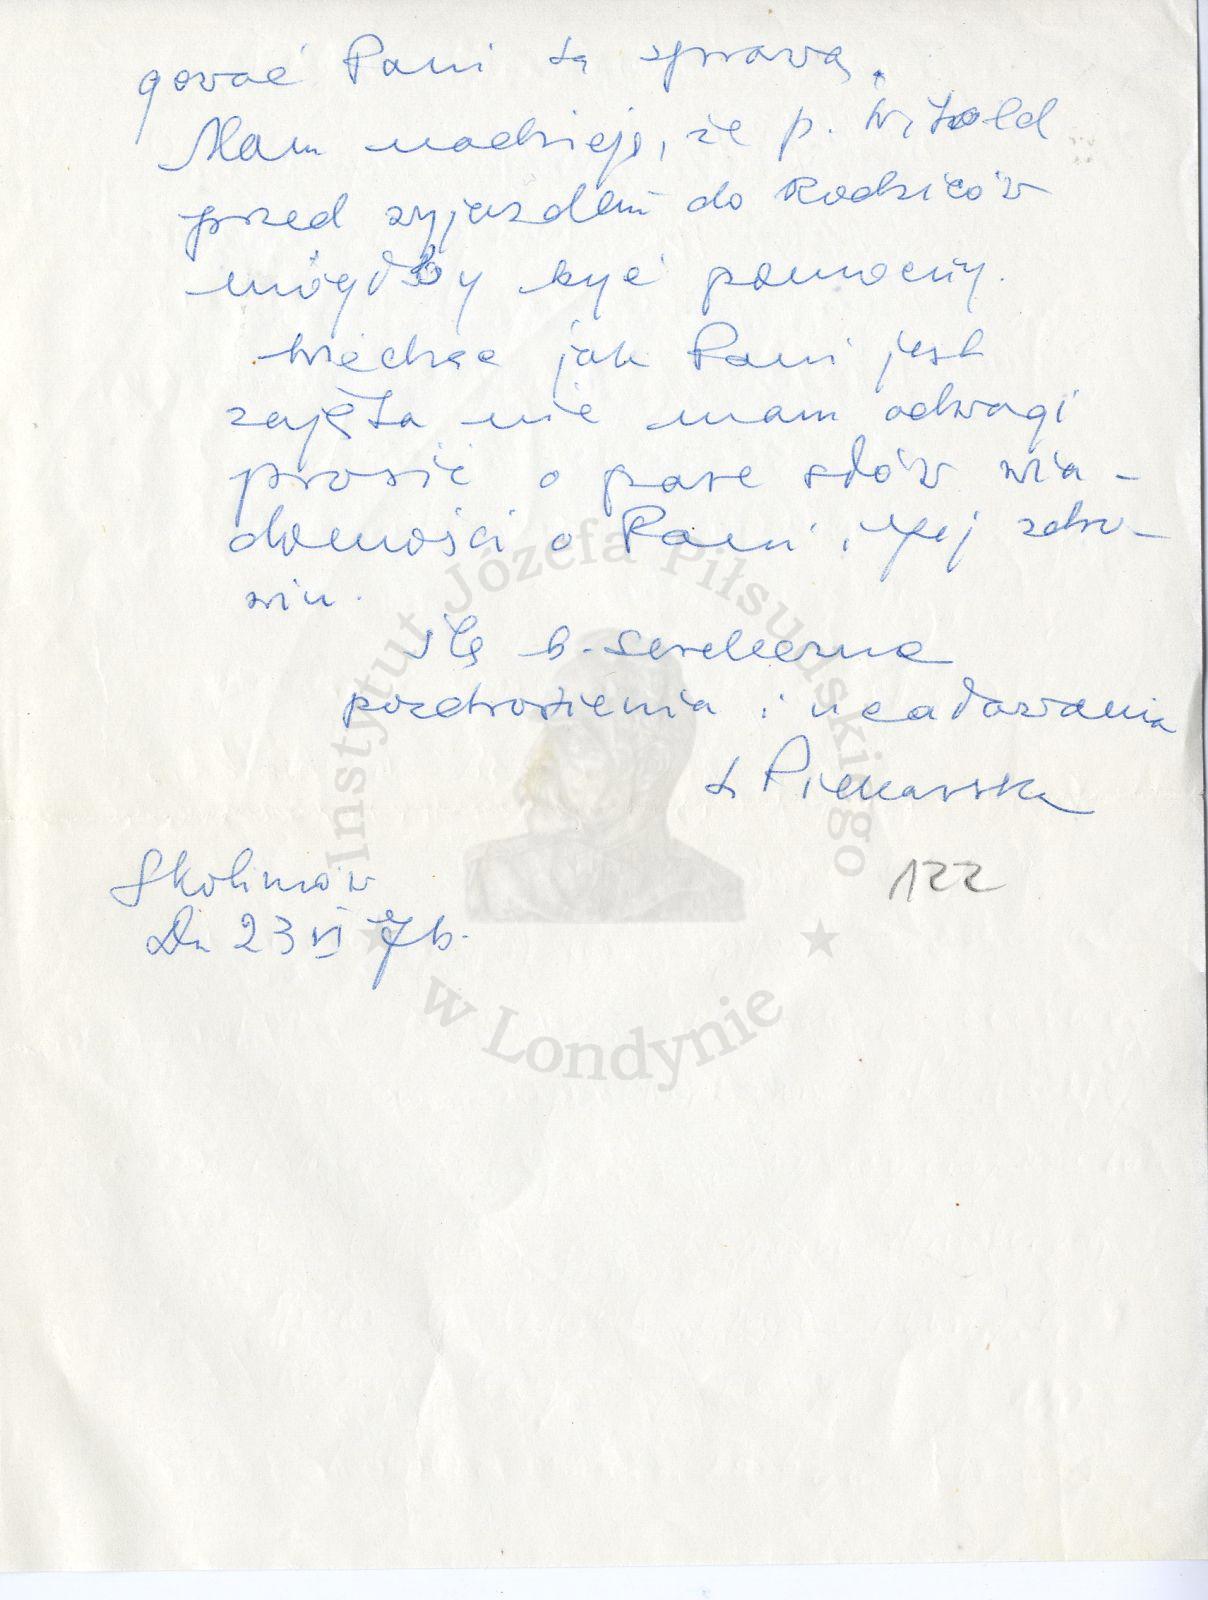 gować Pani tą sprawą.
Mam nadzieję, że p. Witold
przed wyjazdem do Rodziców
mógłby być pomocny.
Wiedząc jak Pani jest
zajęta nie mam odwagi
prosić o parę słów wia-
domości o Pani i Jej zdro-
wiu.
Ślę b. serdeczne
pozdrowienia i ucałowania
Piekarska
Skolimów
Dn 23 VI 76.
122
Instytut Józefa Piłsudskiego
w Londynie